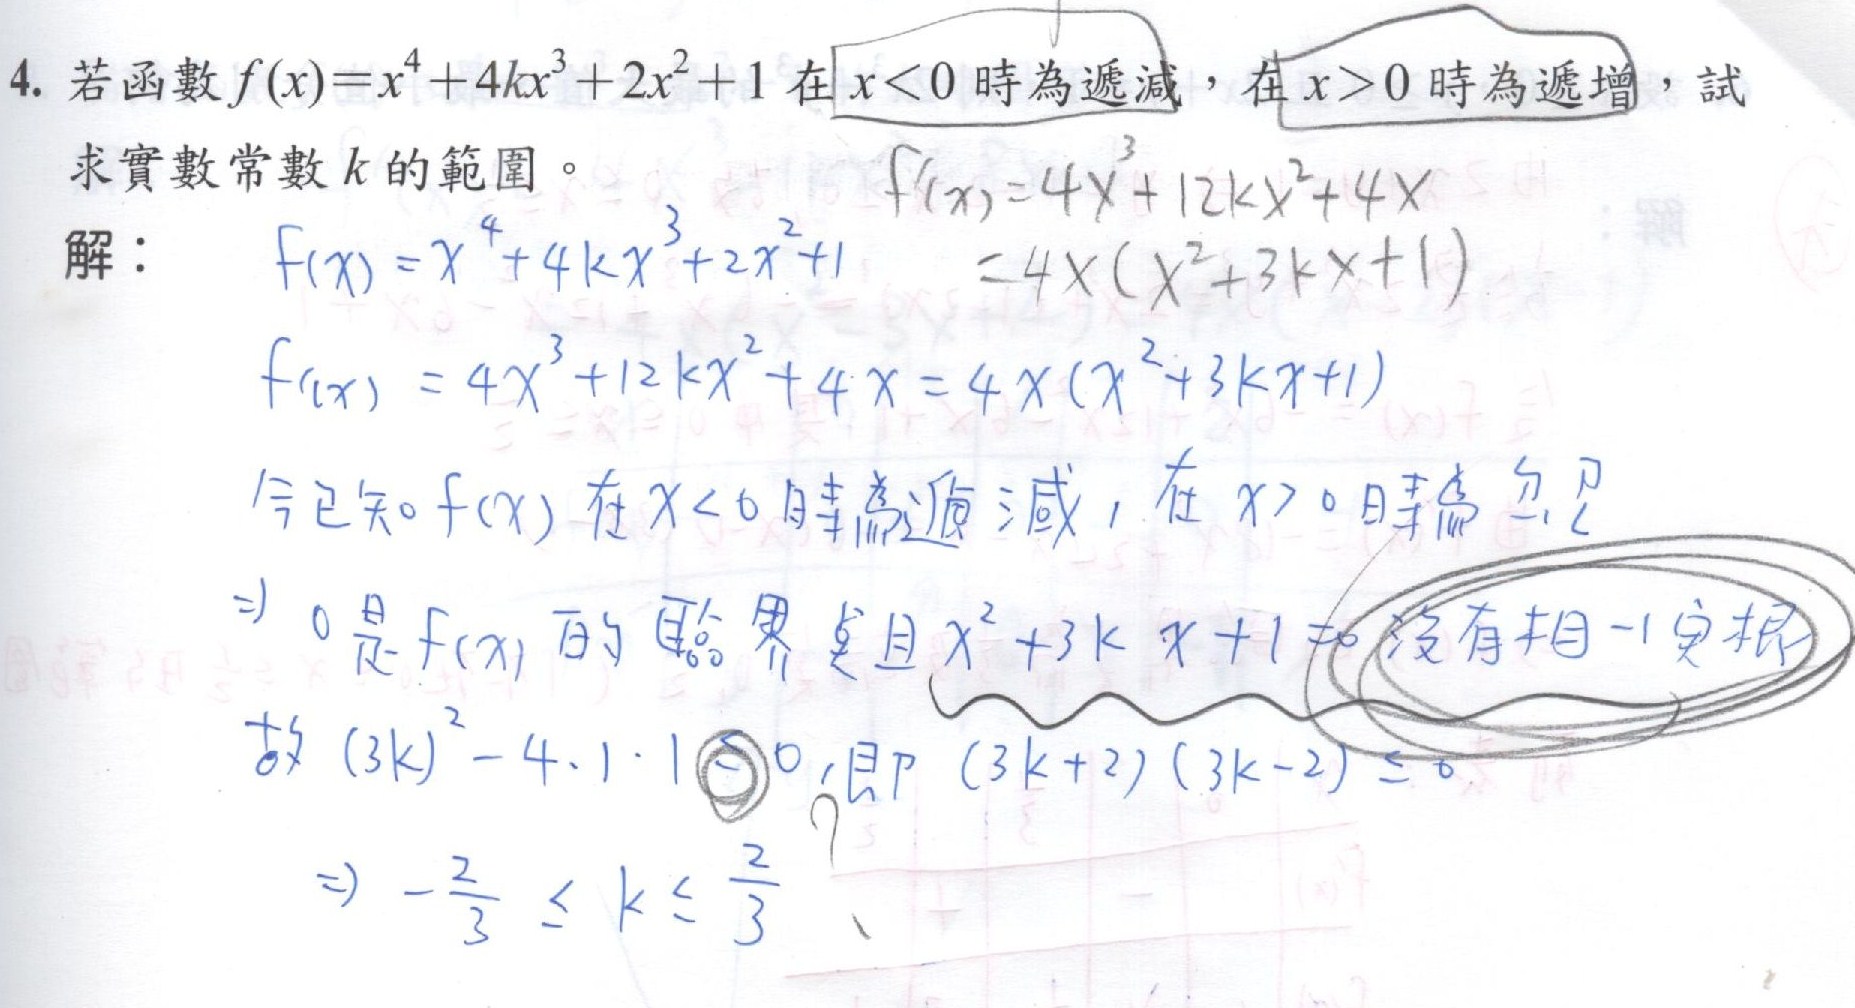 4. 若函數 f(x)=x⁴+4kx³+2x²+1 在 x<0 時為遞減，在 x>0 時為遞增，試
求實數常數 k 的範圍。
f'(x)=4x³+12kx²+4x
=4x(x²+3kx+1)
解：
f(x)=x⁴+4kx³+2x²+1
f'(x)=4x³+12kx²+4x=4x(x²+3kx+1)
今已知 f(x) 在 x<0 時為遞減，在 x>0 時為
⇒ 0 是 f(x) 的臨界點且 x²+3kx+1=0 沒有相一實根
故 (3k)²-4·1·1≤0，即 (3k+2)(3k-2)≤0
?
⇒ -2/3 ≤ k ≤ 2/3